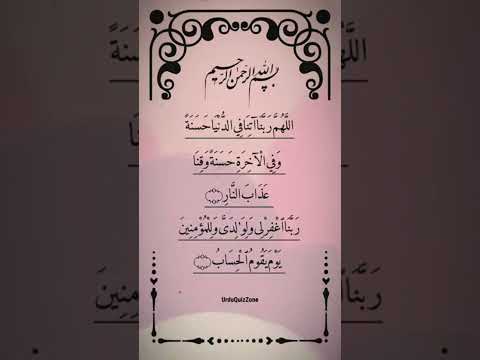 بسم الله الرحمن الرحيم
اللَّهُمَّ رَبَّنَا آتِنَا فِي الدُّنْيَا حَسَنَةً
وَفِي الْآخِرَةِ حَسَنَةً وَقِنَا
عَذَابَ النَّارِ
رَبَّنَا ٱغْفِرْ لِى وَلِوَٰلِدَىَّ وَلِلْمُؤْمِنِينَ
يَوْمَ يَقُومُ ٱلْحِسَابُ
UrduQuizZone